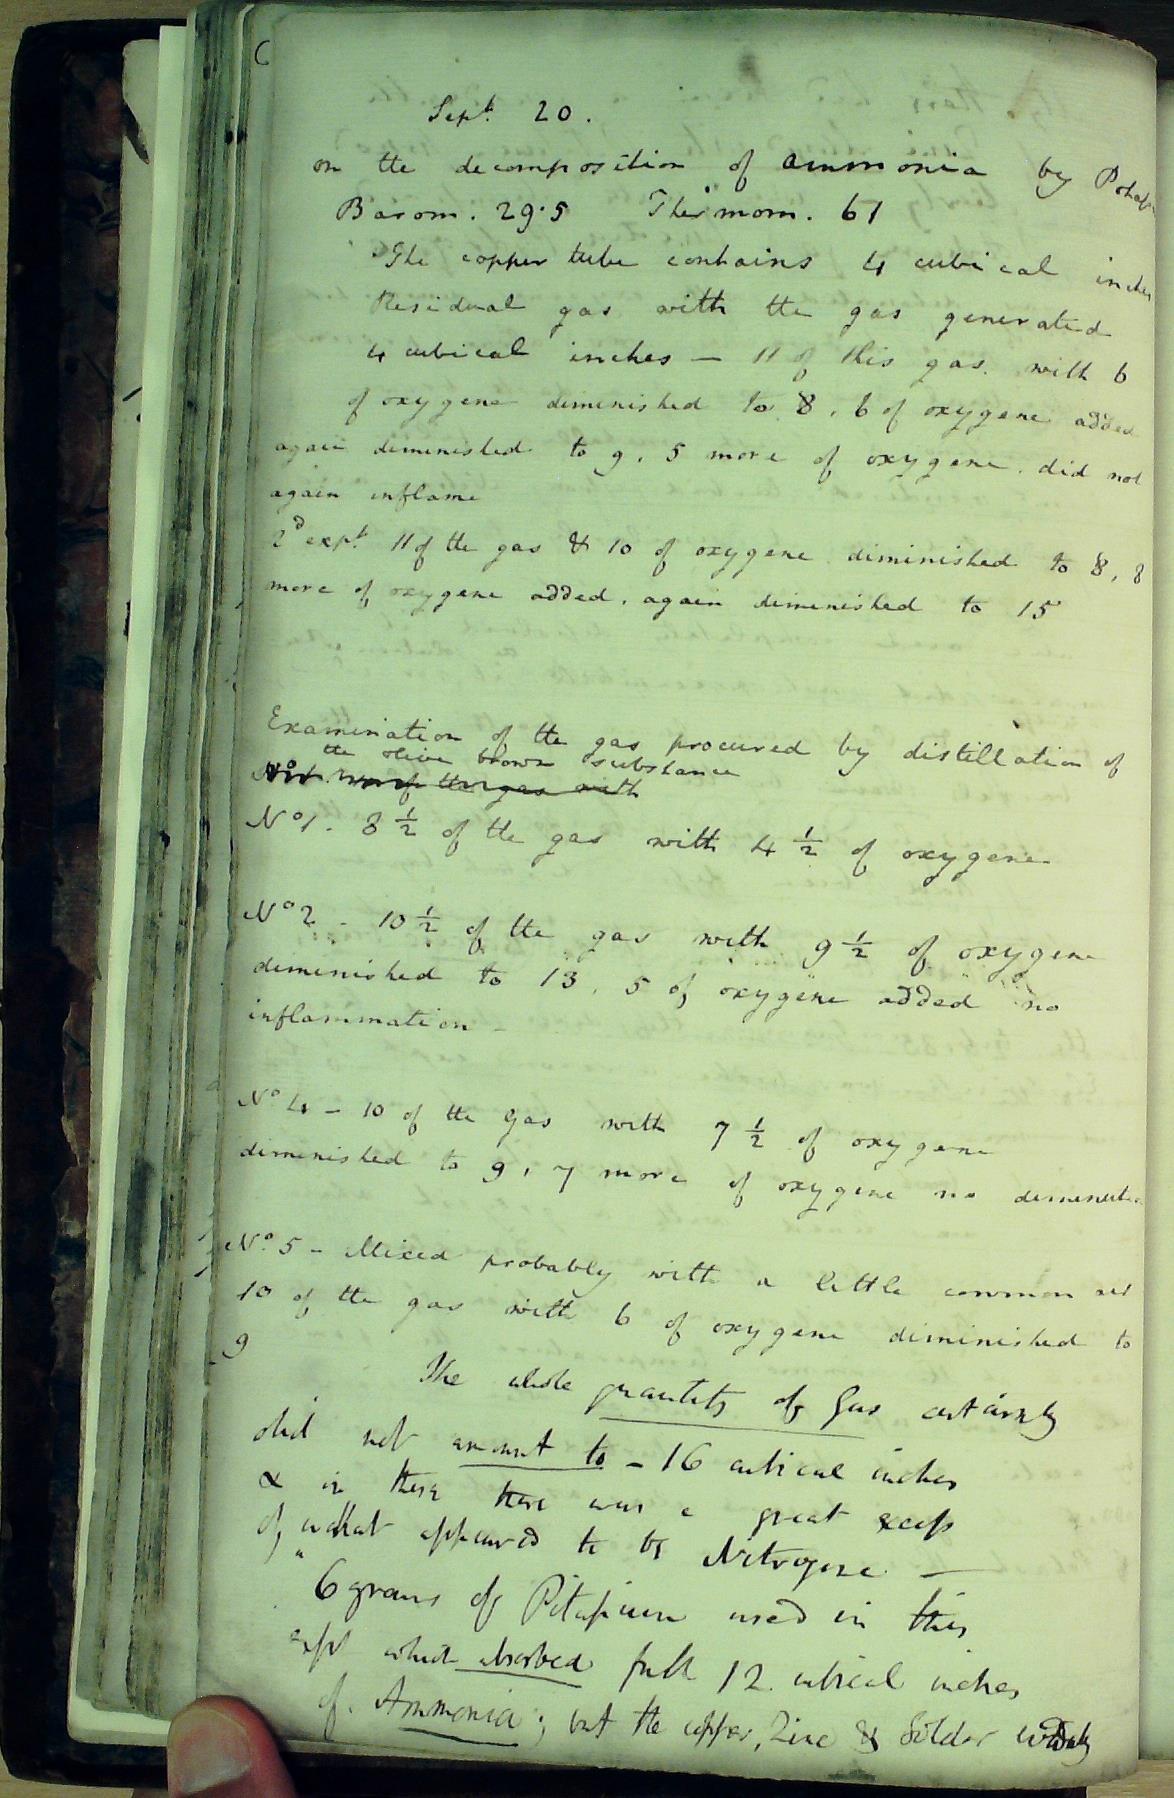 C
Sept. 20.
on the decomposition of ammonia by Potass
Barom. 29.5 Thermom. 61
The copper tube contains 4 cubical inches
Residual gas with the gas generated
4 cubical inches — 11 of this gas. with 6
of oxygene diminished to 8, 6 of oxygene added
again diminished to 9. 5 more of oxygene. did not
again inflame
2d expt. 11 of the gas & 10 of oxygene diminished to 8, 8
more of oxygene added. again diminished to 15
Examination of the gas procured by distillation of
the olive brown substance
of the gas with
No 1. 8 1/2 of the gas with 4 1/2 of oxygene
No 2 - 10 1/2 of the gas with 9 1/2 of oxygene
diminished to 13, 5 of oxygene added no
inflammation -
No 4 - 10 of the gas with 7 1/2 of oxygene
diminished to 9, 7 more of oxygene no diminution
No. 5 - Mixed probably with a little common air
10 of the gas with 6 of oxygene diminished to
9
The whole quantity of Gas certainly
did not amount to - 16 cubical inches
& in these there was a great excess
of what appeared to be Nitrogene —
6 grains of Potassium used in this
expt which absorbed full 12 cubical inches
of Ammonia; but the copper, Zinc & Solder